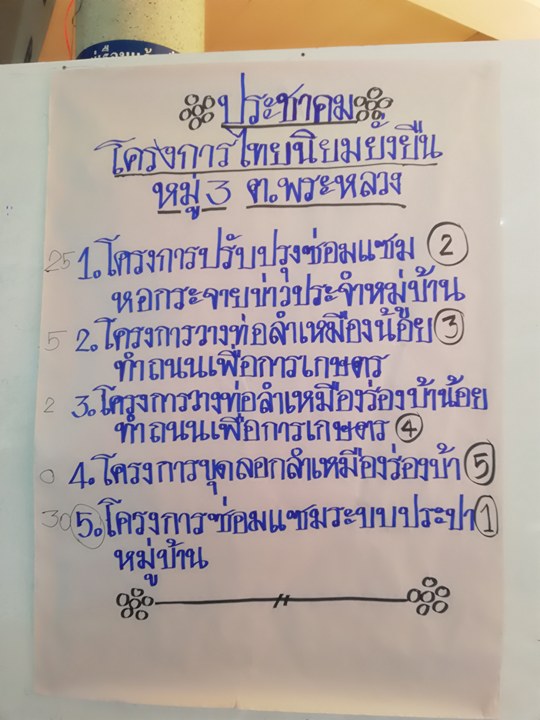 ประชาคม
โครงการไทยนิยมยั่งยืน
หมู่ 3 ต.พระหลวง
25 1. โครงการปรับปรุงซ่อมแซม 2
หอกระจายข่าวประจำหมู่บ้าน
5 2. โครงการวางท่อลำเหมืองน้อย 3
ทำถนนเพื่อการเกษตร
2 3. โครงการวางท่อลำเหมืองร่องบ้าน้อย
ทำถนนเพื่อการเกษตร 4
0 4. โครงการขุดลอกลำเหมืองร่องบ้า 5
30 5. โครงการซ่อมแซมระบบประปา 1
หมู่บ้าน